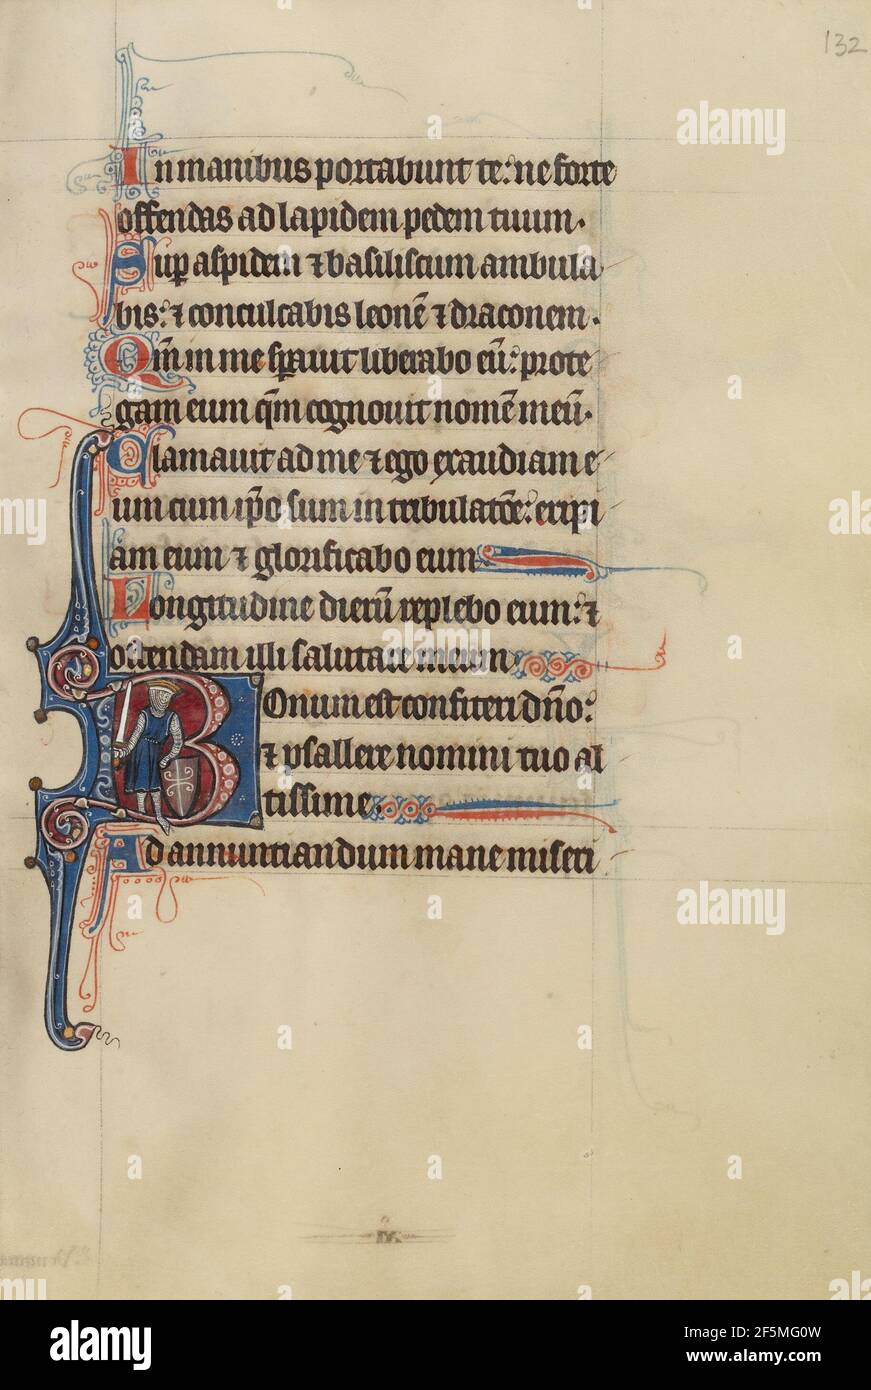 132
In manibus portabunt te: ne forte
offendas ad lapidem pedem tuum.
Sup aspidem ⁊ basiliscum ambula
bis: ⁊ conculcabis leonē ⁊ draconem.
Qm̄ in me sperauit liberabo eū: prote
gam eum qm̄ cognouit nomē meū.
Clamauit ad me ⁊ ego exaudiam e
um cum ip̄o sum in tribulatōe: eripi
am eum ⁊ glorificabo eum
Longitudine dierū replebo eum: ⁊
ostendam illi salutare meum
Bonum est confiteri dn̄o:
⁊ psallere nomini tuo al
tissime.
Ad annuntiandum mane miseri
alamy
alamy
Image ID: 2F5MG0W
www.alamy.com